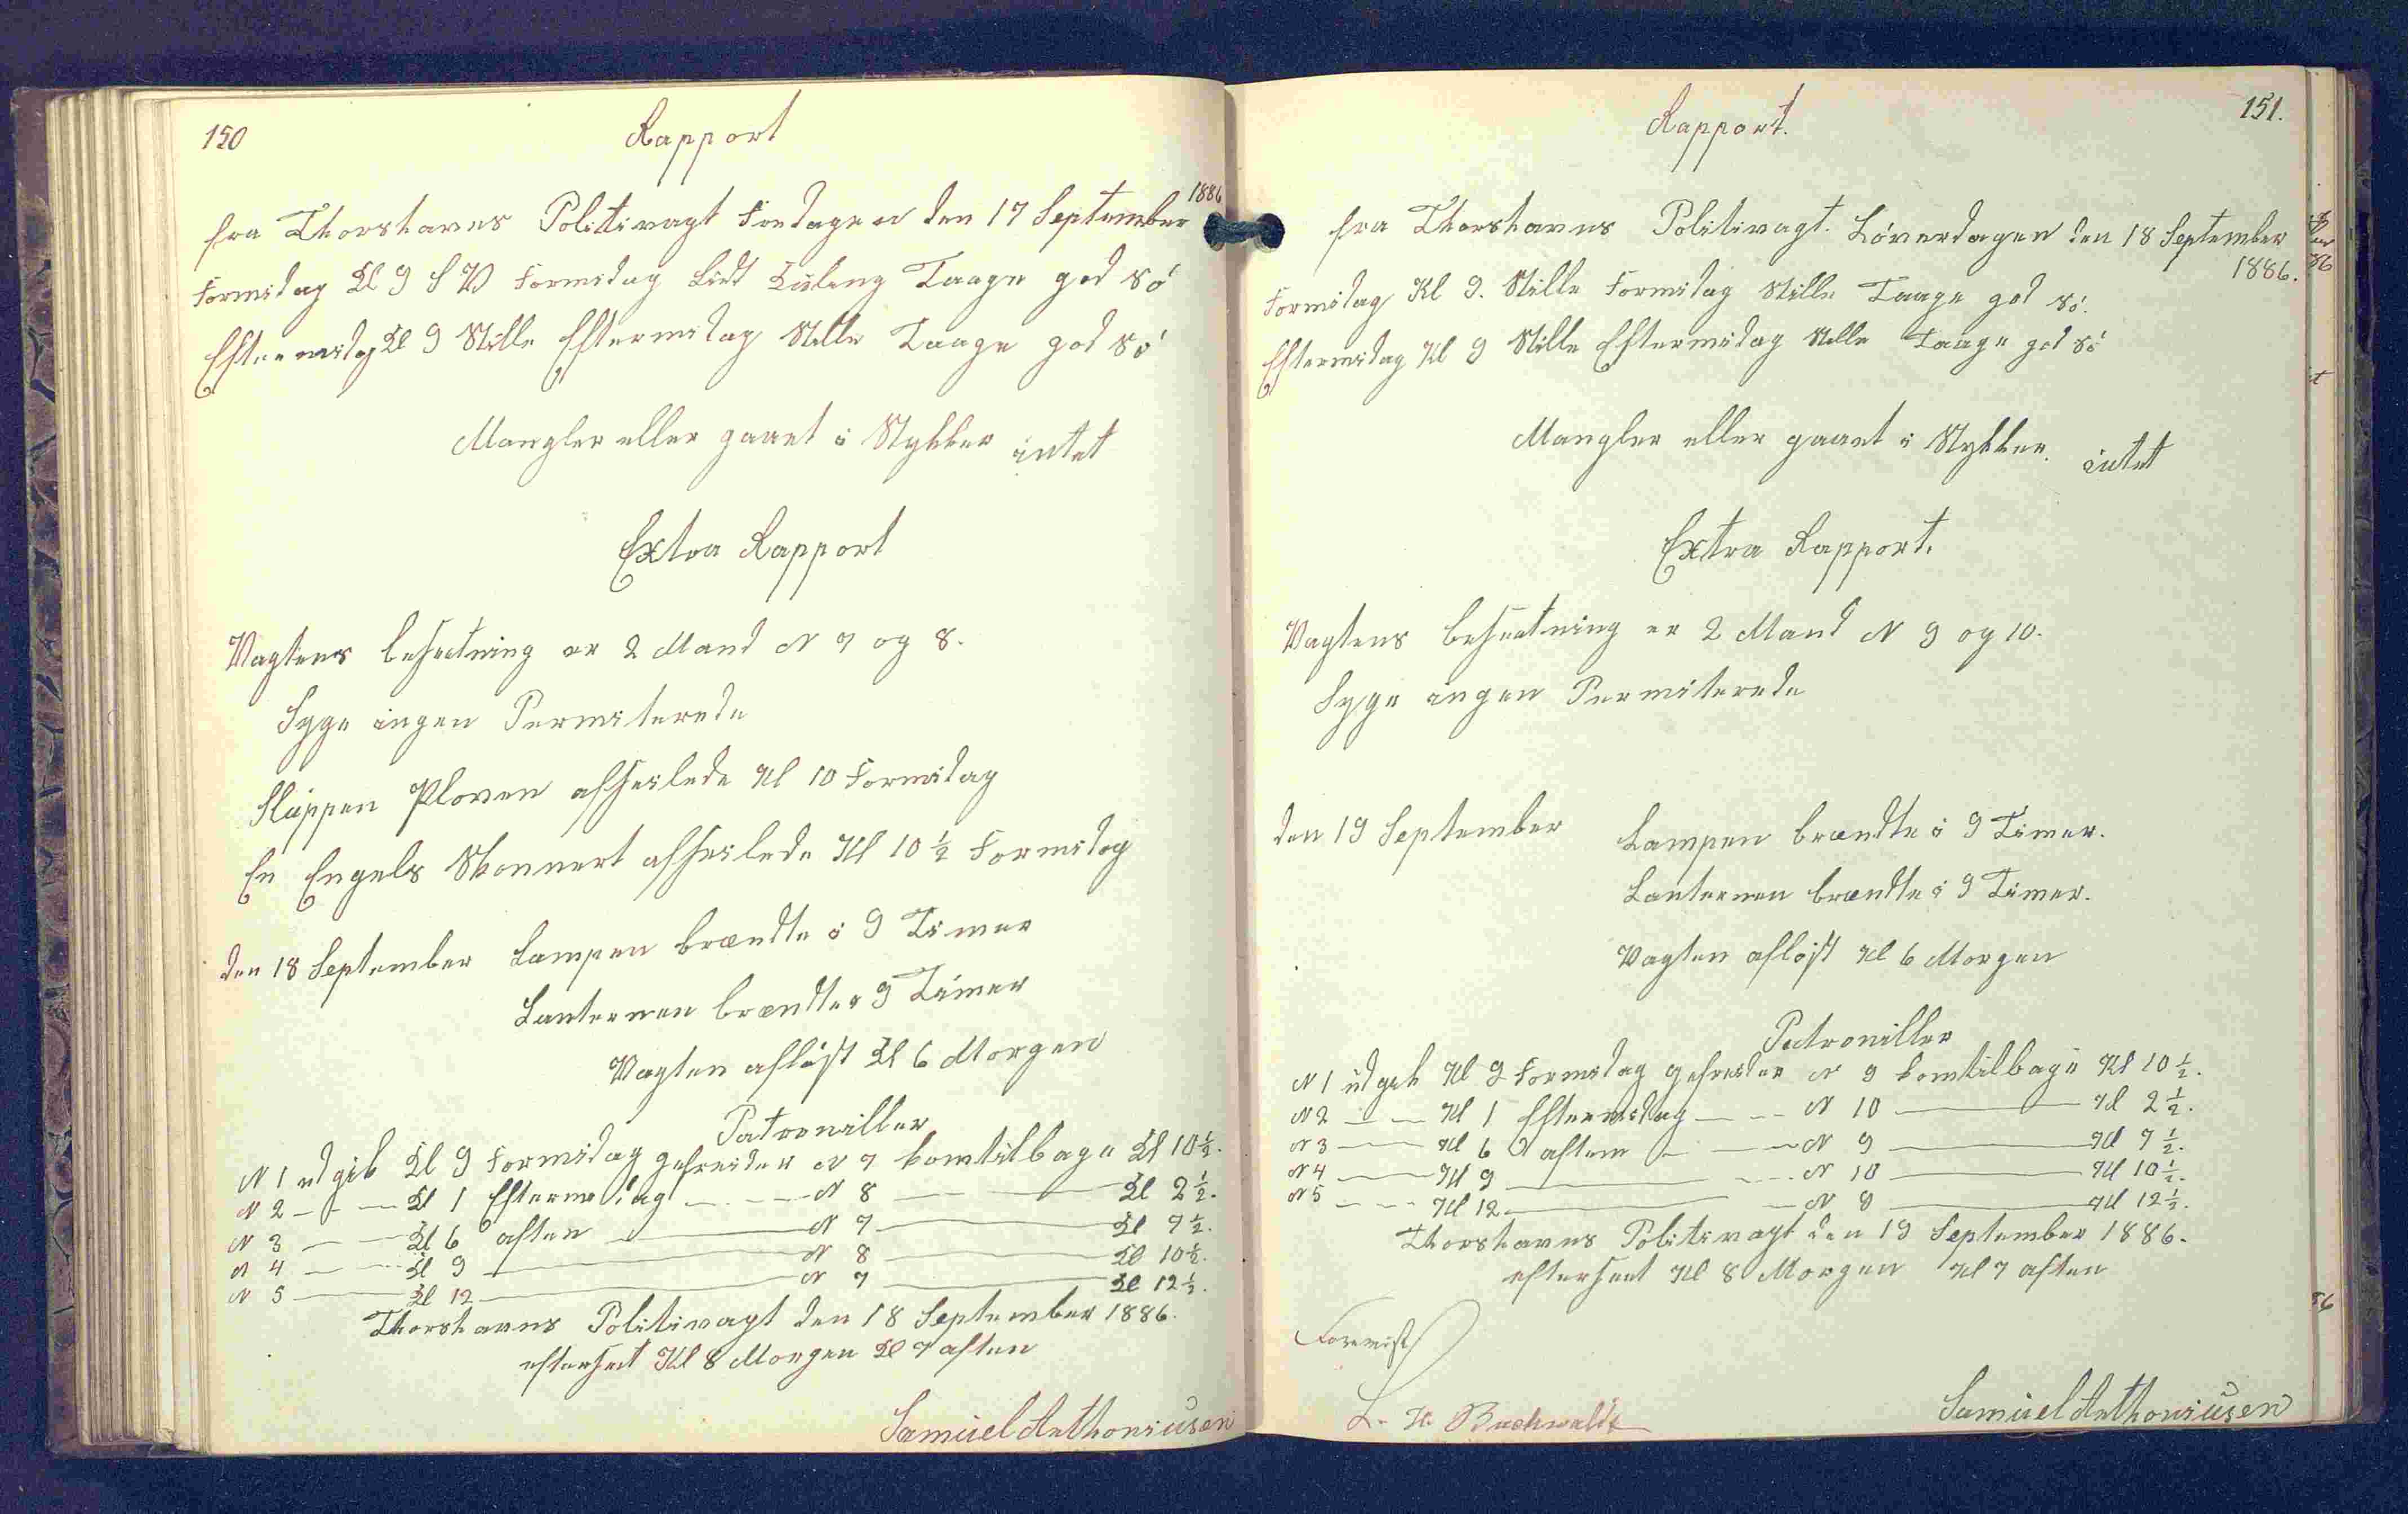 150
Rapport
fra Thorshavns Politivagt Fredagen den 17 September 1886
Formidag Kl 9 S V Formidag Lidt Kuling Taage god Sö
Eftermidag Kl 9 Stille Eftermidag Stille Taage god Sö
Mangler eller gaaet i Stykker intet
Extra Rapport
Vagtens besætning er 2 Mand N 7 og 8.
Syge ingen Permiterede
Sluppen Ploven afseilede Kl 10 Formidag
En Engels Skonnert afseilede Kl 10 ½ Formidag
den 18 September Lampen brændte i 9 Timer
Lanternen brændte i 9 Timer
Vagten afløst Kl 6 Morgen
Patrouiller
N 1 udgik Kl 9 Formidag gefreider N 7 komtilbage Kl 10 ½.
N 2 — — — Kl 1 Eftermidag — — — N 8 — — Kl 2 ½.
N 3 — — Kl 6 aften — N 7 — Kl 7 ½.
N 4 — — Kl 9 — N 8 — Kl 10 ½.
N 5 — Kl 12 — N 7 — Kl 12 ½.
Thorshavns Politivagt den 18 September 1886.
efterseet Kl 8 Morgen Kl 7 aften
Samuel Anthoniusen
151.
Rapport.
fra Thorshavns Politivagt. Löverdagen den 18 September 1886.
Formidag Kl 9. Stille Formidag Stille Taage god Sö.
Eftermidag Kl 9 Stille Eftermidag Stille Taage god Sö
Mangler eller gaaet i Stykker. intet
Extra Rapport.
Vagtens besætning er 2 Mand N 9 og 10.
Syge ingen Permiterede
den 19 September Lampen brændte i 9 Timer.
Lanternen brændte i 9 Timer.
Vagten afløst Kl 6 Morgen
Patrouiller
N 1 udgik Kl 9 Formidag gefreider N 9 komtilbage Kl 10 ½.
N 2 — — Kl 1 Eftermidag — — N 10 — Kl 2 ½.
N 3 — Kl 6 aften — — N 9 — Kl 7 ½.
N 4 — Kl 9 — N 10 — Kl 10 ½.
N 5 — — Kl 12 — N 9 — Kl 12 ½.
Thorshavns Politivagt den 19 September 1886.
efterseet Kl 8 Morgen Kl 7 aften
Forevist
L. H. Buchwaldt
Samuel Anthoniusen